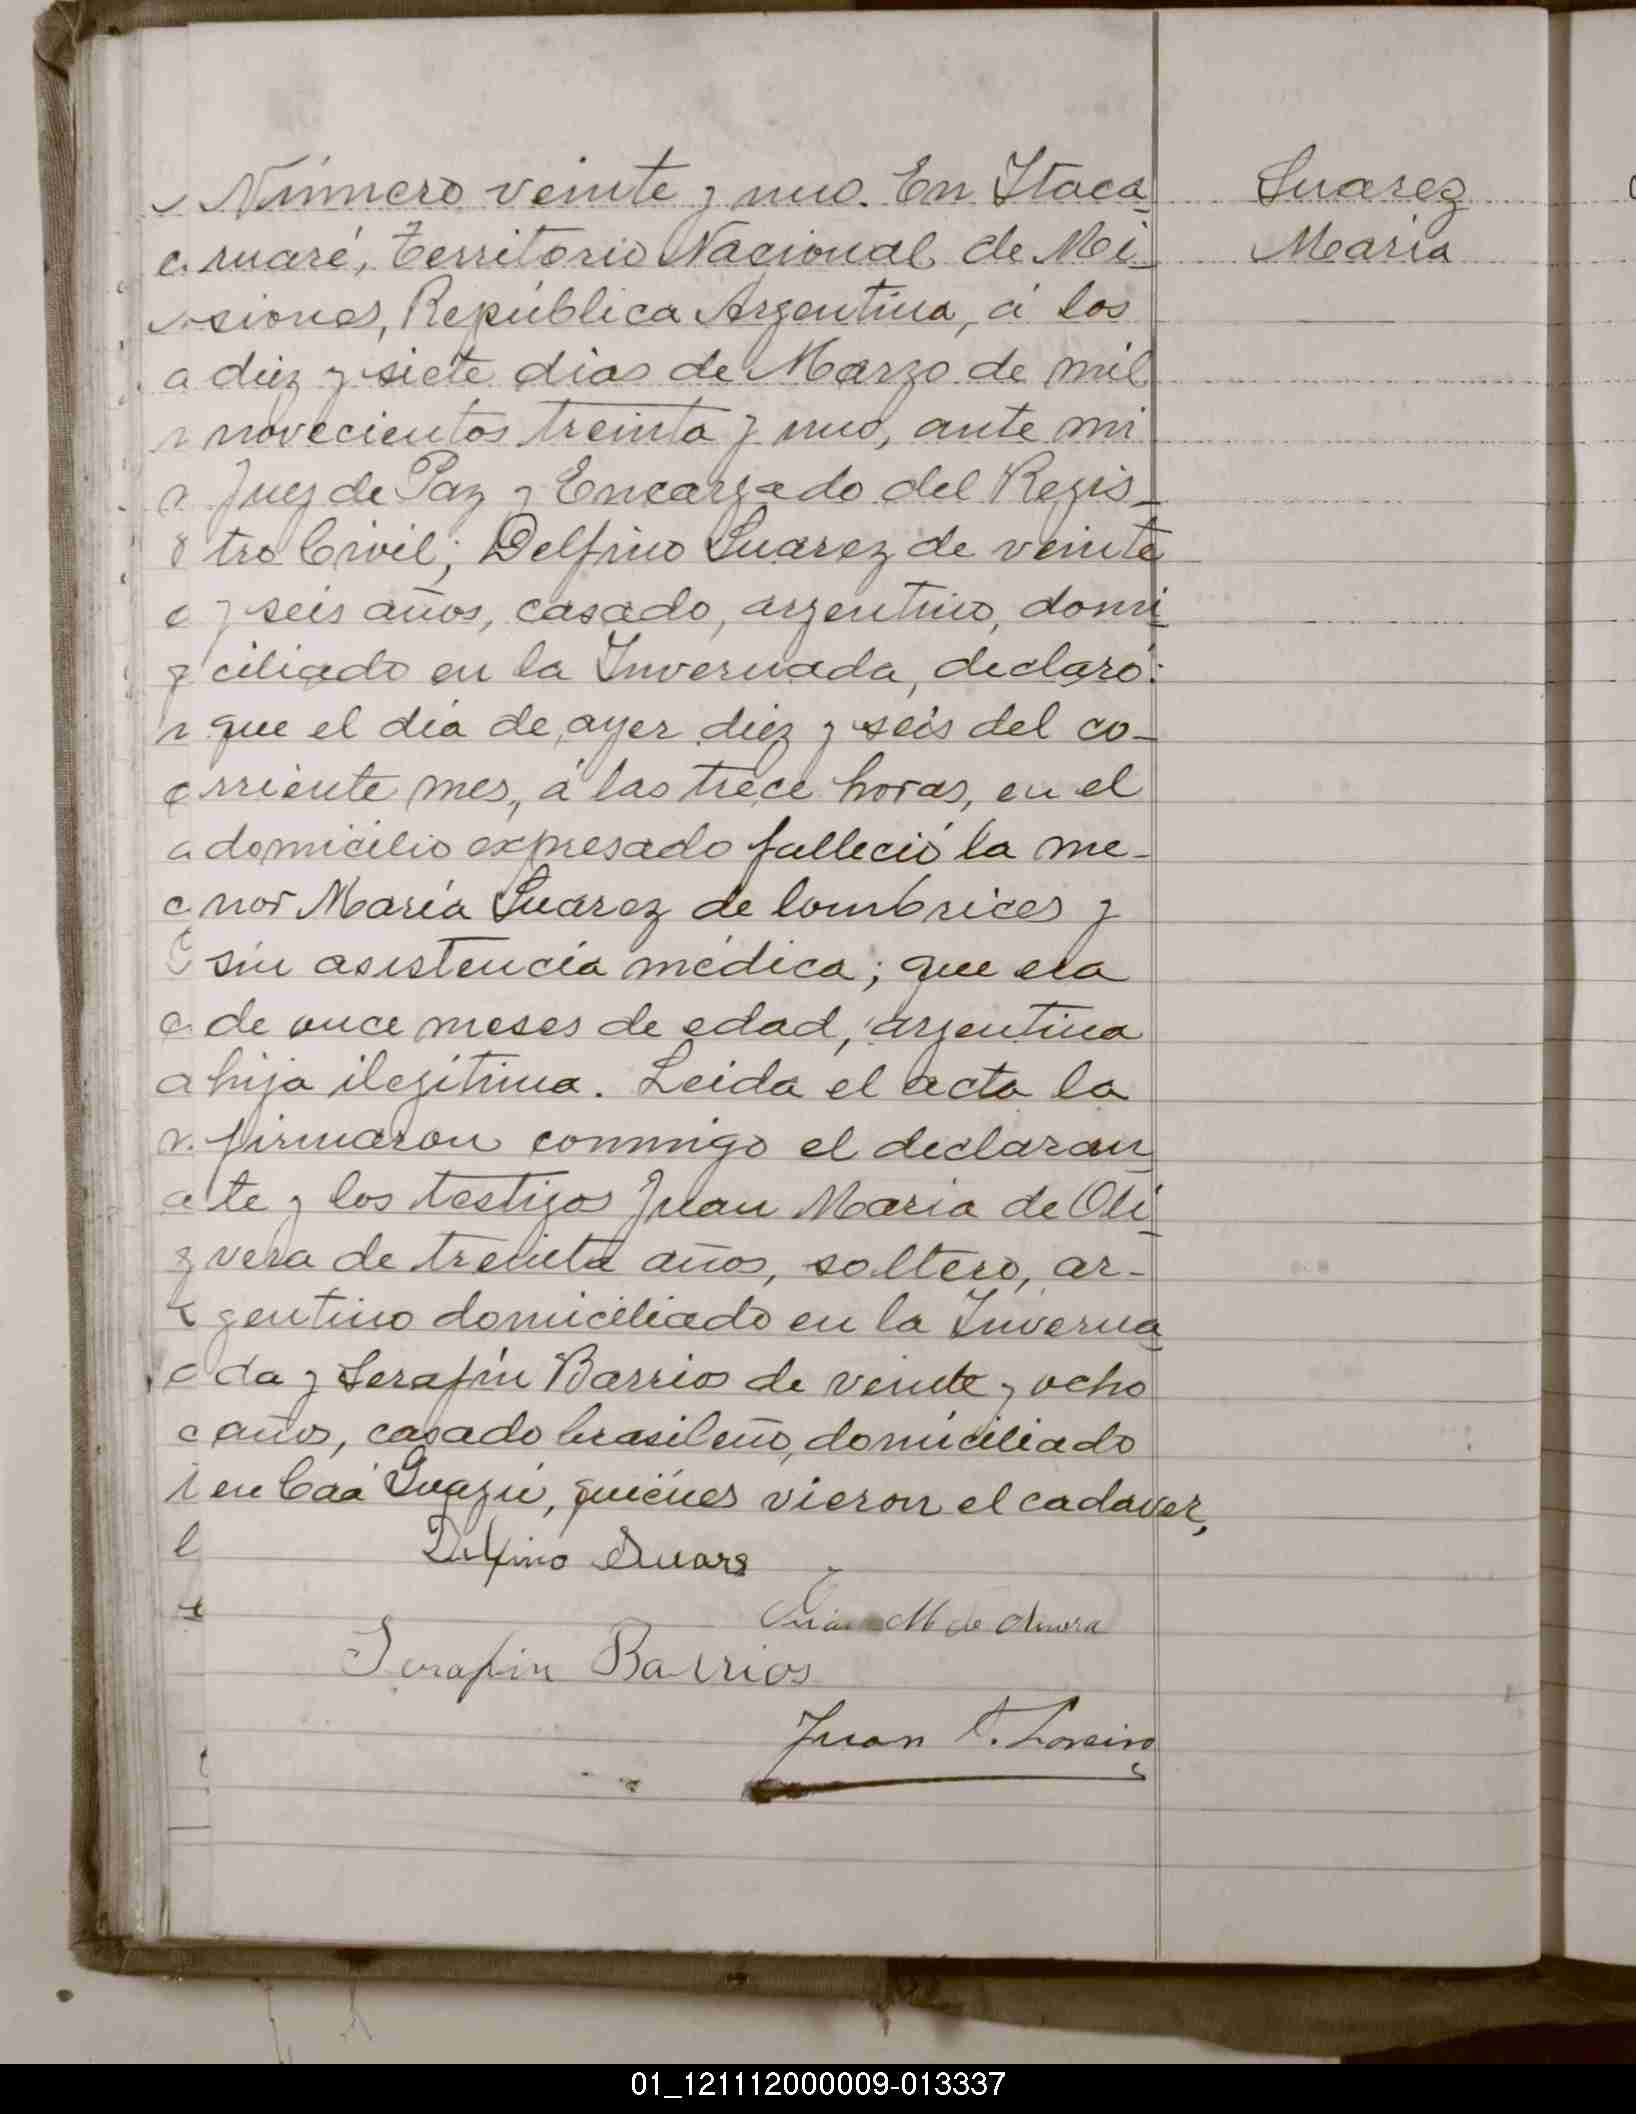 Número veinte y uno. En Itaca-
ruaré, Territorio Nacional de Mi-
siones, República Argentina, á los
diez y siete dias de Marzo de mil
novecientos treinta y uno, ante mi
Juez de Paz y Encargado del Regis-
tro Civil; Delfino Suarez de veinte
y seis años, casado, argentino, domi-
ciliado en la Invernada, declaró:
que el dia de ayer diez y seis del co-
rriente mes, á las trece horas, en el
domicilio expresado falleció la me-
nor María Suarez de lombrices y
sin asistencia médica; que era
de once meses de edad, argentina
hija ilegitima. Leida el acta la
firmaron conmigo el declaran-
te y los testigos Juan Maria de Oli-
vera de treinta años, soltero, ar-
gentino domiciliado en la Inverna-
da y Serafín Barrios de veinte y ocho
años, casado brasileño, domiciliado
en Caá Guazú, quiénes vieron el cadaver,
Delfino Suares
M de
Serafin Barrios
Juan
Suarez
Maria
01_121112000009-013337